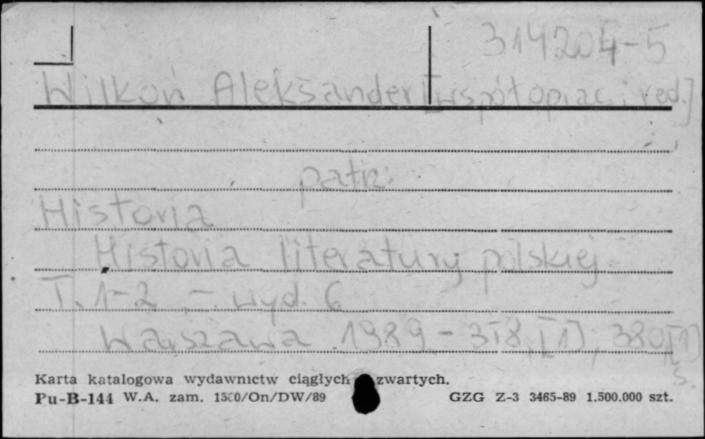 314204-5
Wilkoń Aleksander [współoprac. i red.]
patrz:
Historia
Historia literatury polskiej
T. 1-2 - wyd. 6
Warszawa 1989 - 318, [1]; 380 [1] s.
Karta katalogowa wydawnictw ciągłych zwartych.
Pu-B-144 W.A. zam. 1500/On/DW/89 GZG Z-3 3465-89 1.500.000 szt.